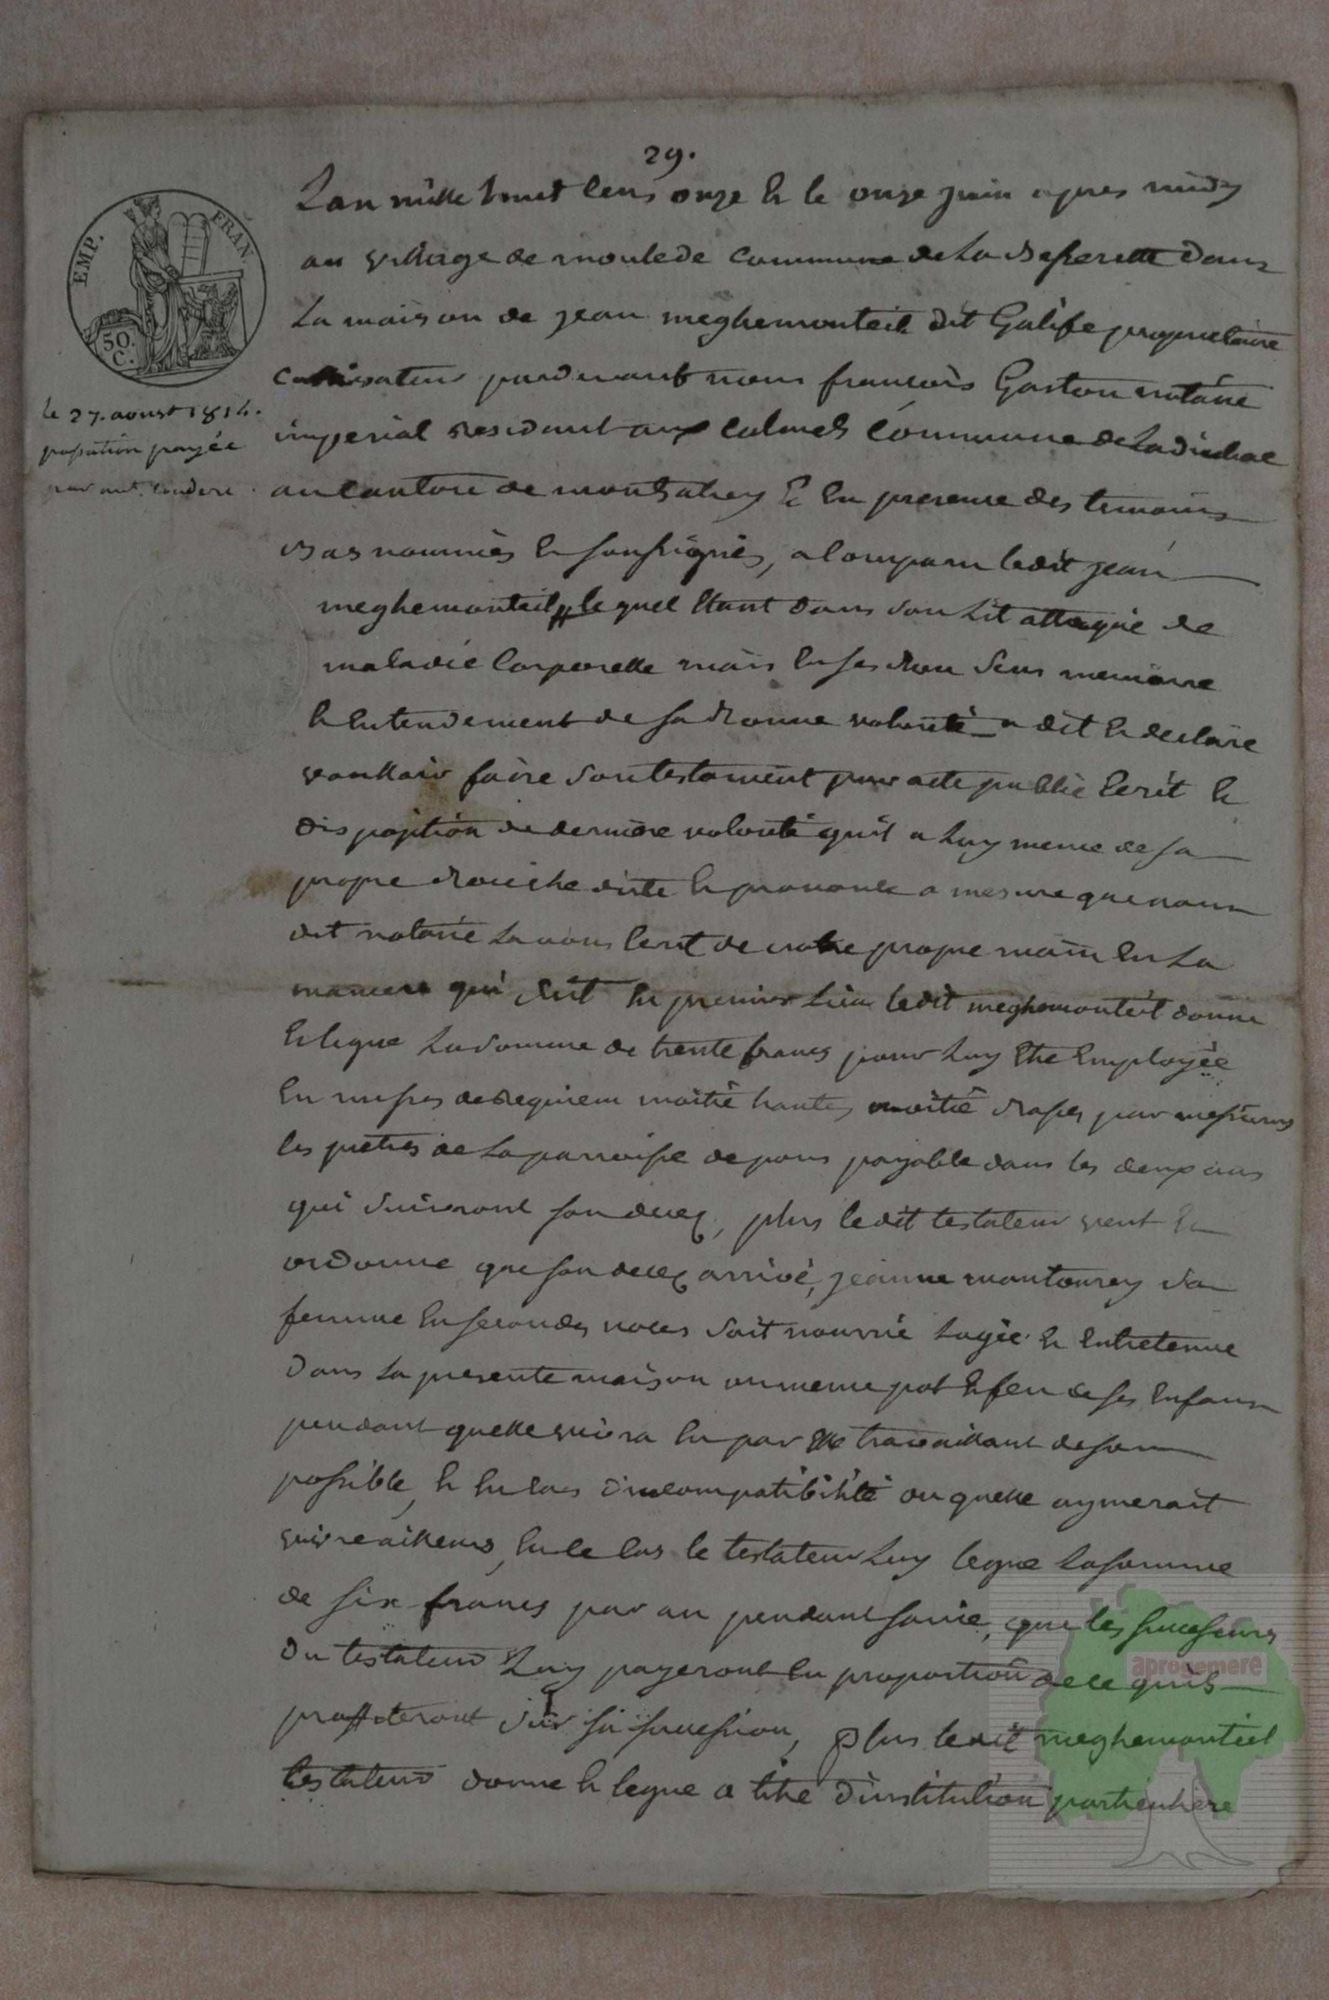 29.
Lan mille huit cens onze & le onze juin apres midy
au village de moulede commune de La Besserette dans
La maison de jean meghemonteil dit Galife proprietaire
cultivateur pardevant nous francois Gaston notaire
imperial residant aux calmels commune de Ladinhac
au canton de montsalvy & en presence des temoins
bas nommés & soussignés, a comparu ledit jean
meghemonteil lequel etant dans son Lit attaqué de
maladie corporelle mais en ses bon sens memoire
& entendement de sa bonne volonté a dit & declaré
voulloir faire son testament par acte public ecrit &
disposition de derniere volonté quil a Luy meme de sa
propre bouche dicté & prononcé a mesure que nous
dit notaire La vons ecrit de notre propre main en La
maniere qui suit en premier Lieu ledit meghemonteil donne
& legue La somme de trente francs pour Luy etre Employée
En messes de requiem moitié hautes moitié basses par messieurs
les pretres de La parroisse de pons payable dans les deux ans
qui suivront son decez, plus ledit testateur veut &
ordonne que son decez arrivé, jeanne montourcy sa
femme en secondes noces soit nourrie Logée & entretenue
Dans La presente maison au meme pot & feu de ses enfans
pendant quelle vivra en par elle travaillant de son
possible, & en cas dincompatibilité ou quelle aymerait
vivre ailleurs, en ce cas le testateur Luy legue La somme
de six francs par an pendant sa vie, que les successeurs
Du testateur Luy payeront en proportion de ce quils
proffiteront sur sa succession, plus ledit meghemontiel
testateur donne & legue a titre dinstitution particuliere
EMP. FRAN.
50.
C.
le 27. aoust 1814.
passation payée
par ant. condere
aprogemere